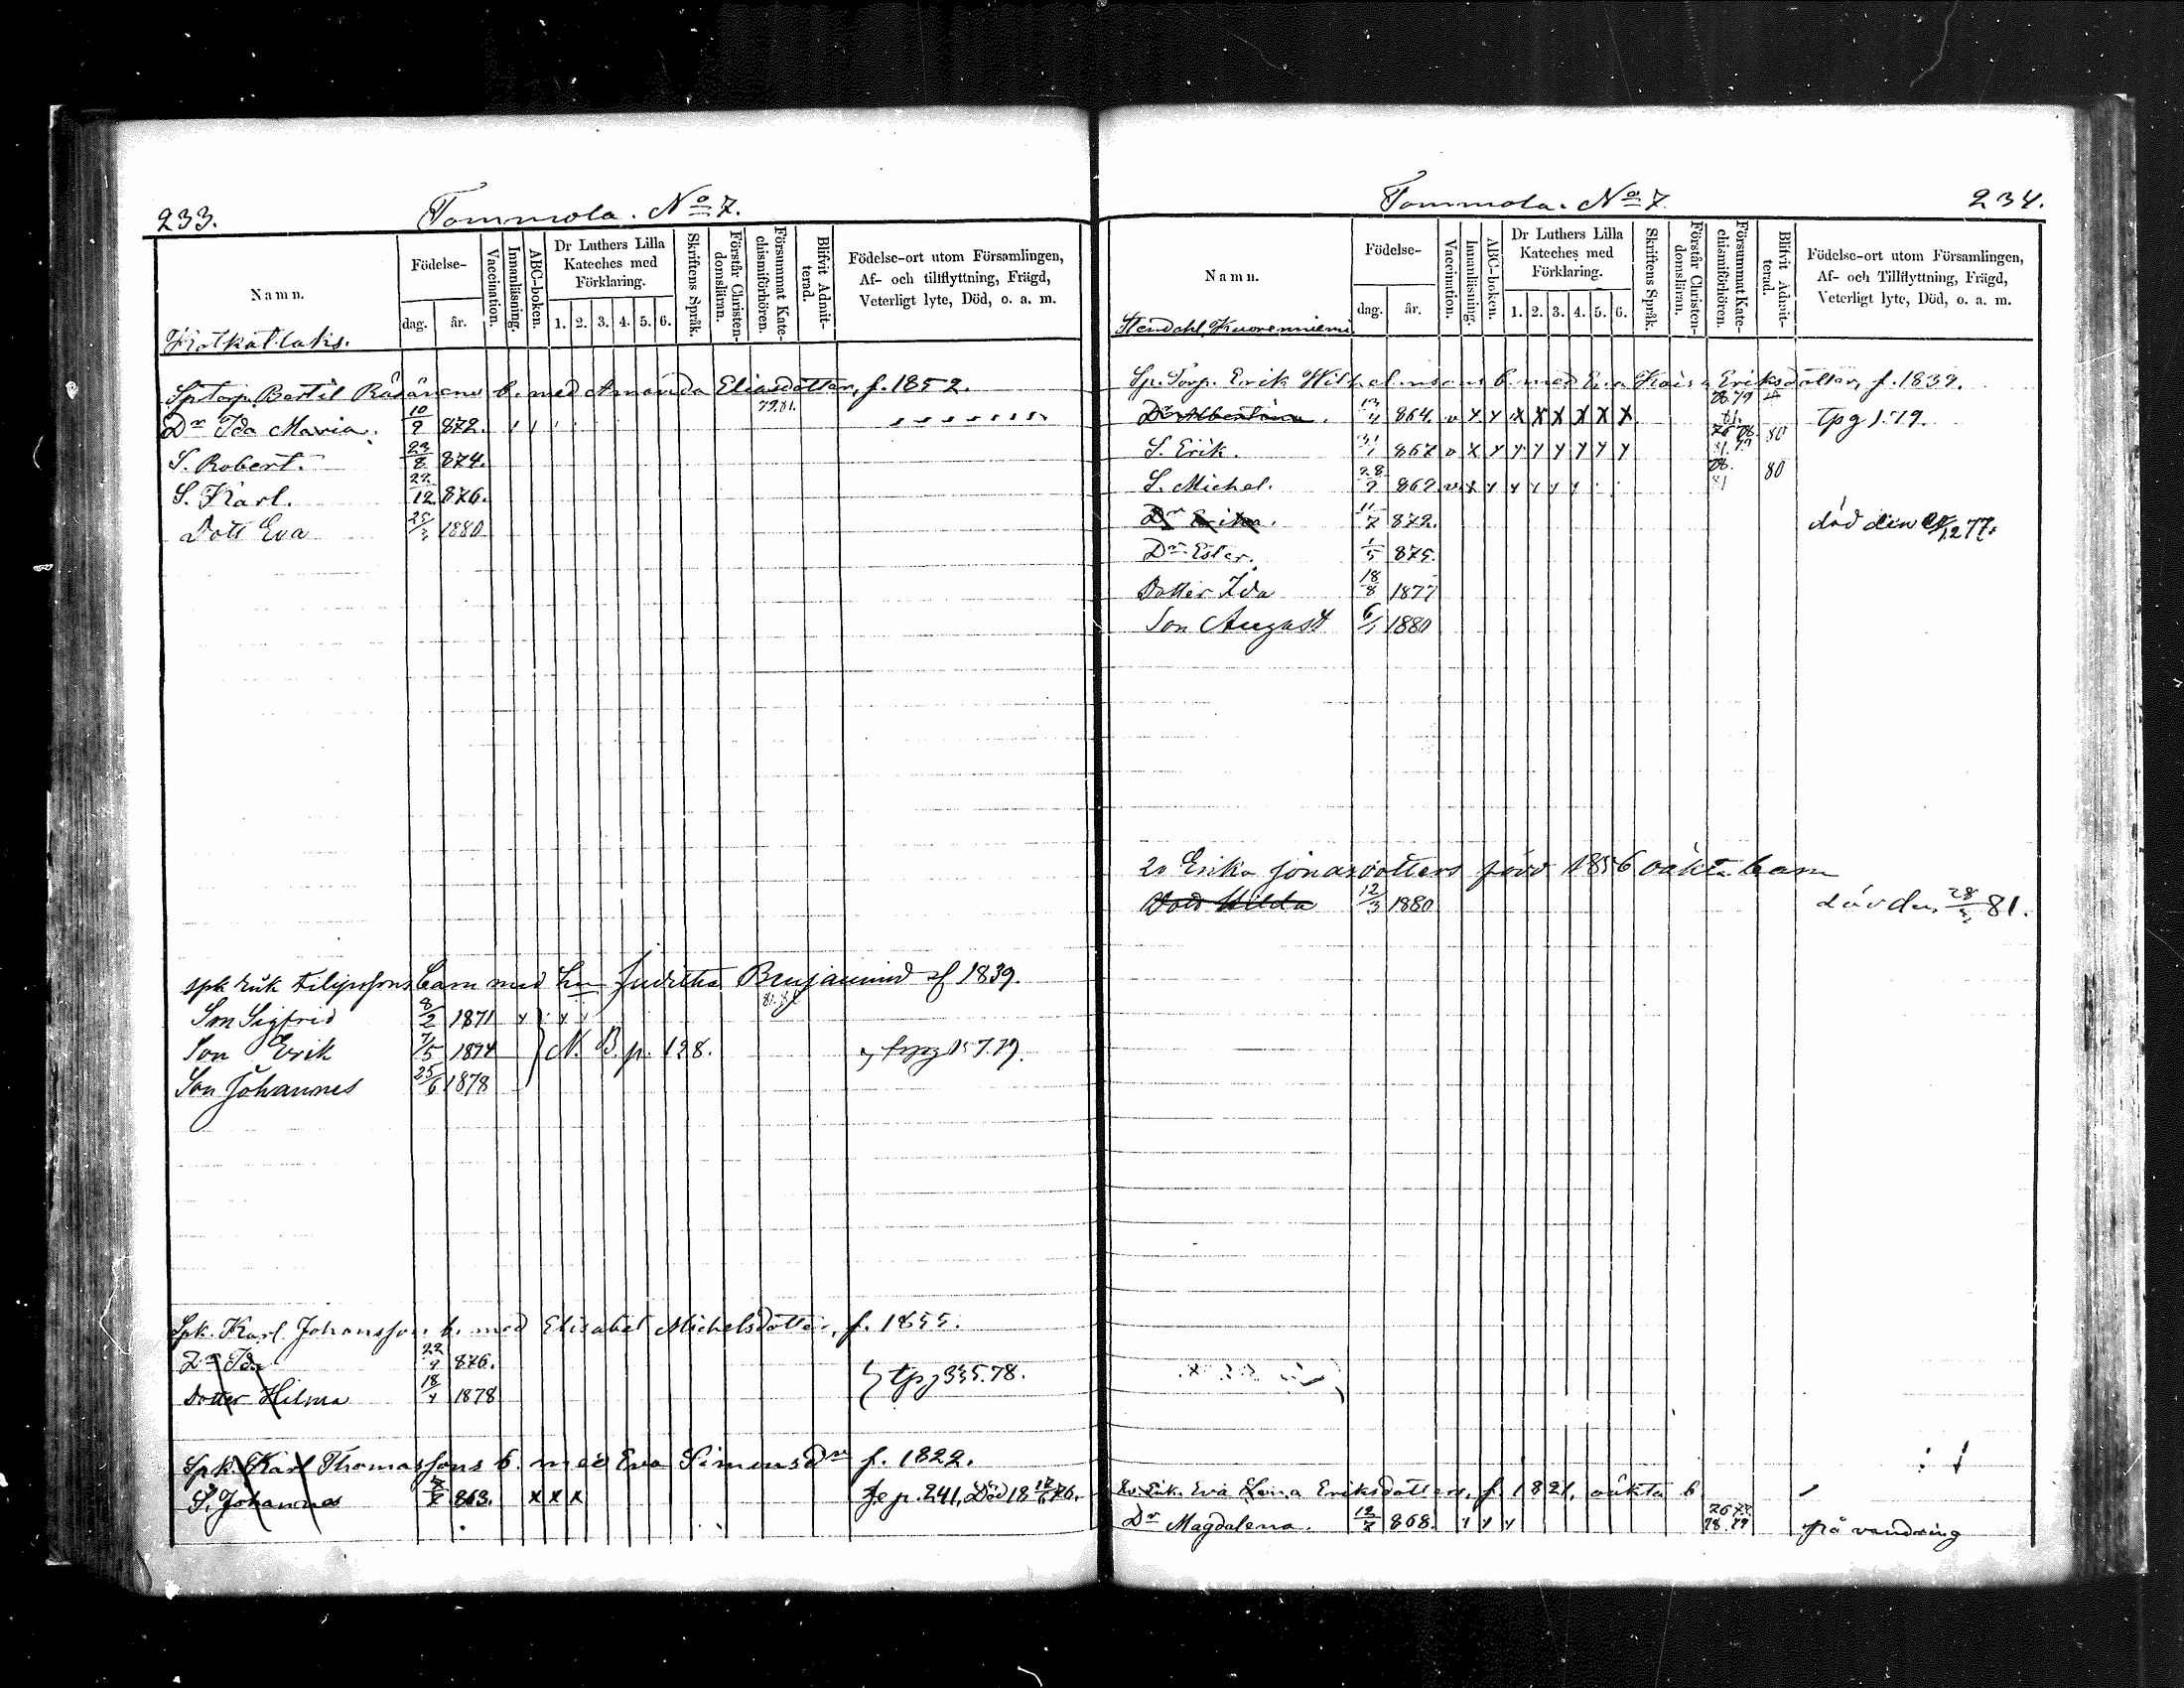 233.
Tommola. No 7.
Namn.
Födelse-
dag.
år.
Vaccination.
Innanläsning.
ABC-boken.
Dr Luthers Lilla Kateches med Förklaring.
1. 2. 3. 4. 5. 6.
Skriftens Språk.
Förstår Christendomsläran.
Försummat Katechismiförhören.
Blifvit Admitterad.
Födelse-ort utom Församlingen,
Af- och tillflyttning, Frägd,
Veterligt lyte, Död, o. a. m.
Sp Torp. Bertil Räsänens b. med Amanda Eliasdotter, f. 1852.
Dr Ida Maria. 10/9 872. 79.81.
S. Robert. 23/8 874.
S. Karl. 22/12 876.
Dott Eva 25/3 1880
spk Erik Filipssons barn med Juditha Benjamind f 1839.
Son Sigfrid 8/2 1871 y
Son Erik 7/5 1874 N. B. p. 128.
Son Johannes 25/6 1878
Spk. Karl Johansson b. med Elisabet Michelsdotter, f. 1855.
Dr Ida 22/9 876.
Dotter Hilma 18/4 1878 tpg 335.78.
Spk. Karl Thomassons b. med Eva Simonsdr f. 1822.
S. Johannes 863. x x x p. 241, Död 18 76.
Tommola. No 7.
234.
Namn.
Födelse-
dag.
år.
Vaccination.
Innanläsning.
ABC-boken.
Dr Luthers Lilla Kateches med Förklaring.
1. 2. 3. 4. 5. 6.
Skriftens Språk.
Förstår Christendomsläran.
Försummat Katechismiförhören.
Blifvit Admitterad.
Födelse-ort utom Församlingen,
Af- och Tillflyttning, Frägd,
Veterligt lyte, Död, o. a. m.
Stendahl Kuorenniemi
Sp. Torp. Erik Wilhelmsons b. med Eva Kaisa Eriksdotter, f. 1839.
Dr Albertina. 864. v x y x x x x x x tpg 1.79.
S. Erik. 31/1 867 v x y y y y y y y 80
S. Michel. 28/9 869 v x y y y y y 80
Dr Erika. 11/7 872. död den 77.
Dr Ester. 1/5 875.
Dotter Ida 18/8 1877
Son August 6/1 1880
Erika Jonasdotters född 1856 oäkta barn
Dott Hilda 12/3 1880 död den 28 81.
Eva Lena Eriksdotters, f. 1821, oäkta b
Dr Magdalena. 12 868. y y y 78.79 på vandring